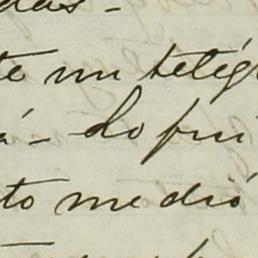 das -
te un telég
á - Lo fuí
to me dió